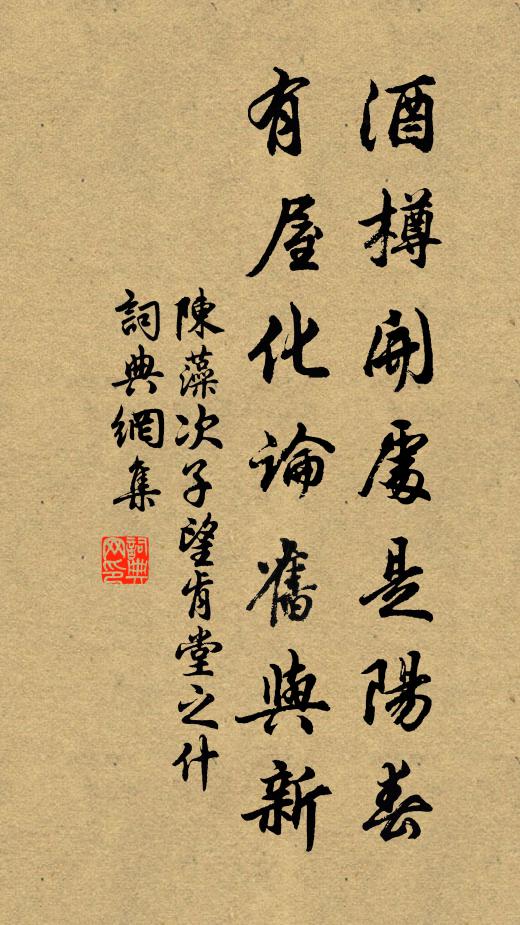 酒樽開處是陽春
有屋化論舊與新
陳藻次子望肯堂之什
詞典網集
詞典網印